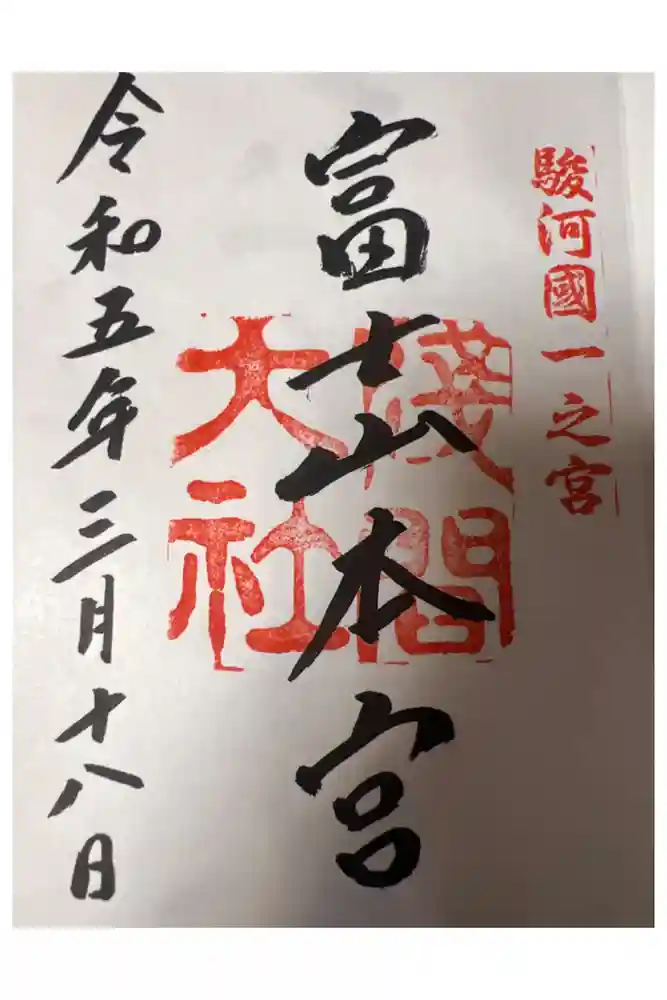 駿河國一之宮
富士山本宮
淺間大社
令和五年三月十八日